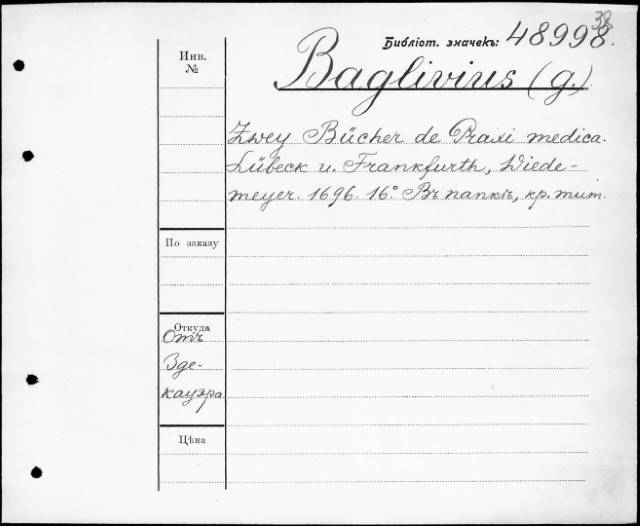 38
Библіот. значекъ: 48998.
Инв.
№
Baglivius (g.)
Zwey Bücher de Praxi medica.
Lübeck u. Frankfurth, Wiede-
meyer. 1696. 16° Въ папкѣ, кр. тит.
По заказу
Откуда
Отъ
Зде-
кауэра
Цѣна